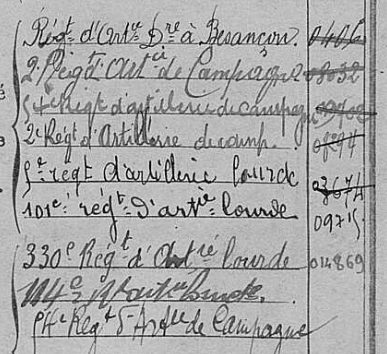 Régt d'Artie Dre à Besançon. 0406
2 Regt d'Arti de Campagne 08032
Regt d'artillerie de campagne
2e Regt d'Artillerie de camp.
5e regt d'artillerie lourde 03674
101e régt d'artie lourde 0975
330e Régt d'Artie lourde 014869
114e lourde.
Regt d'Artie de Campagne